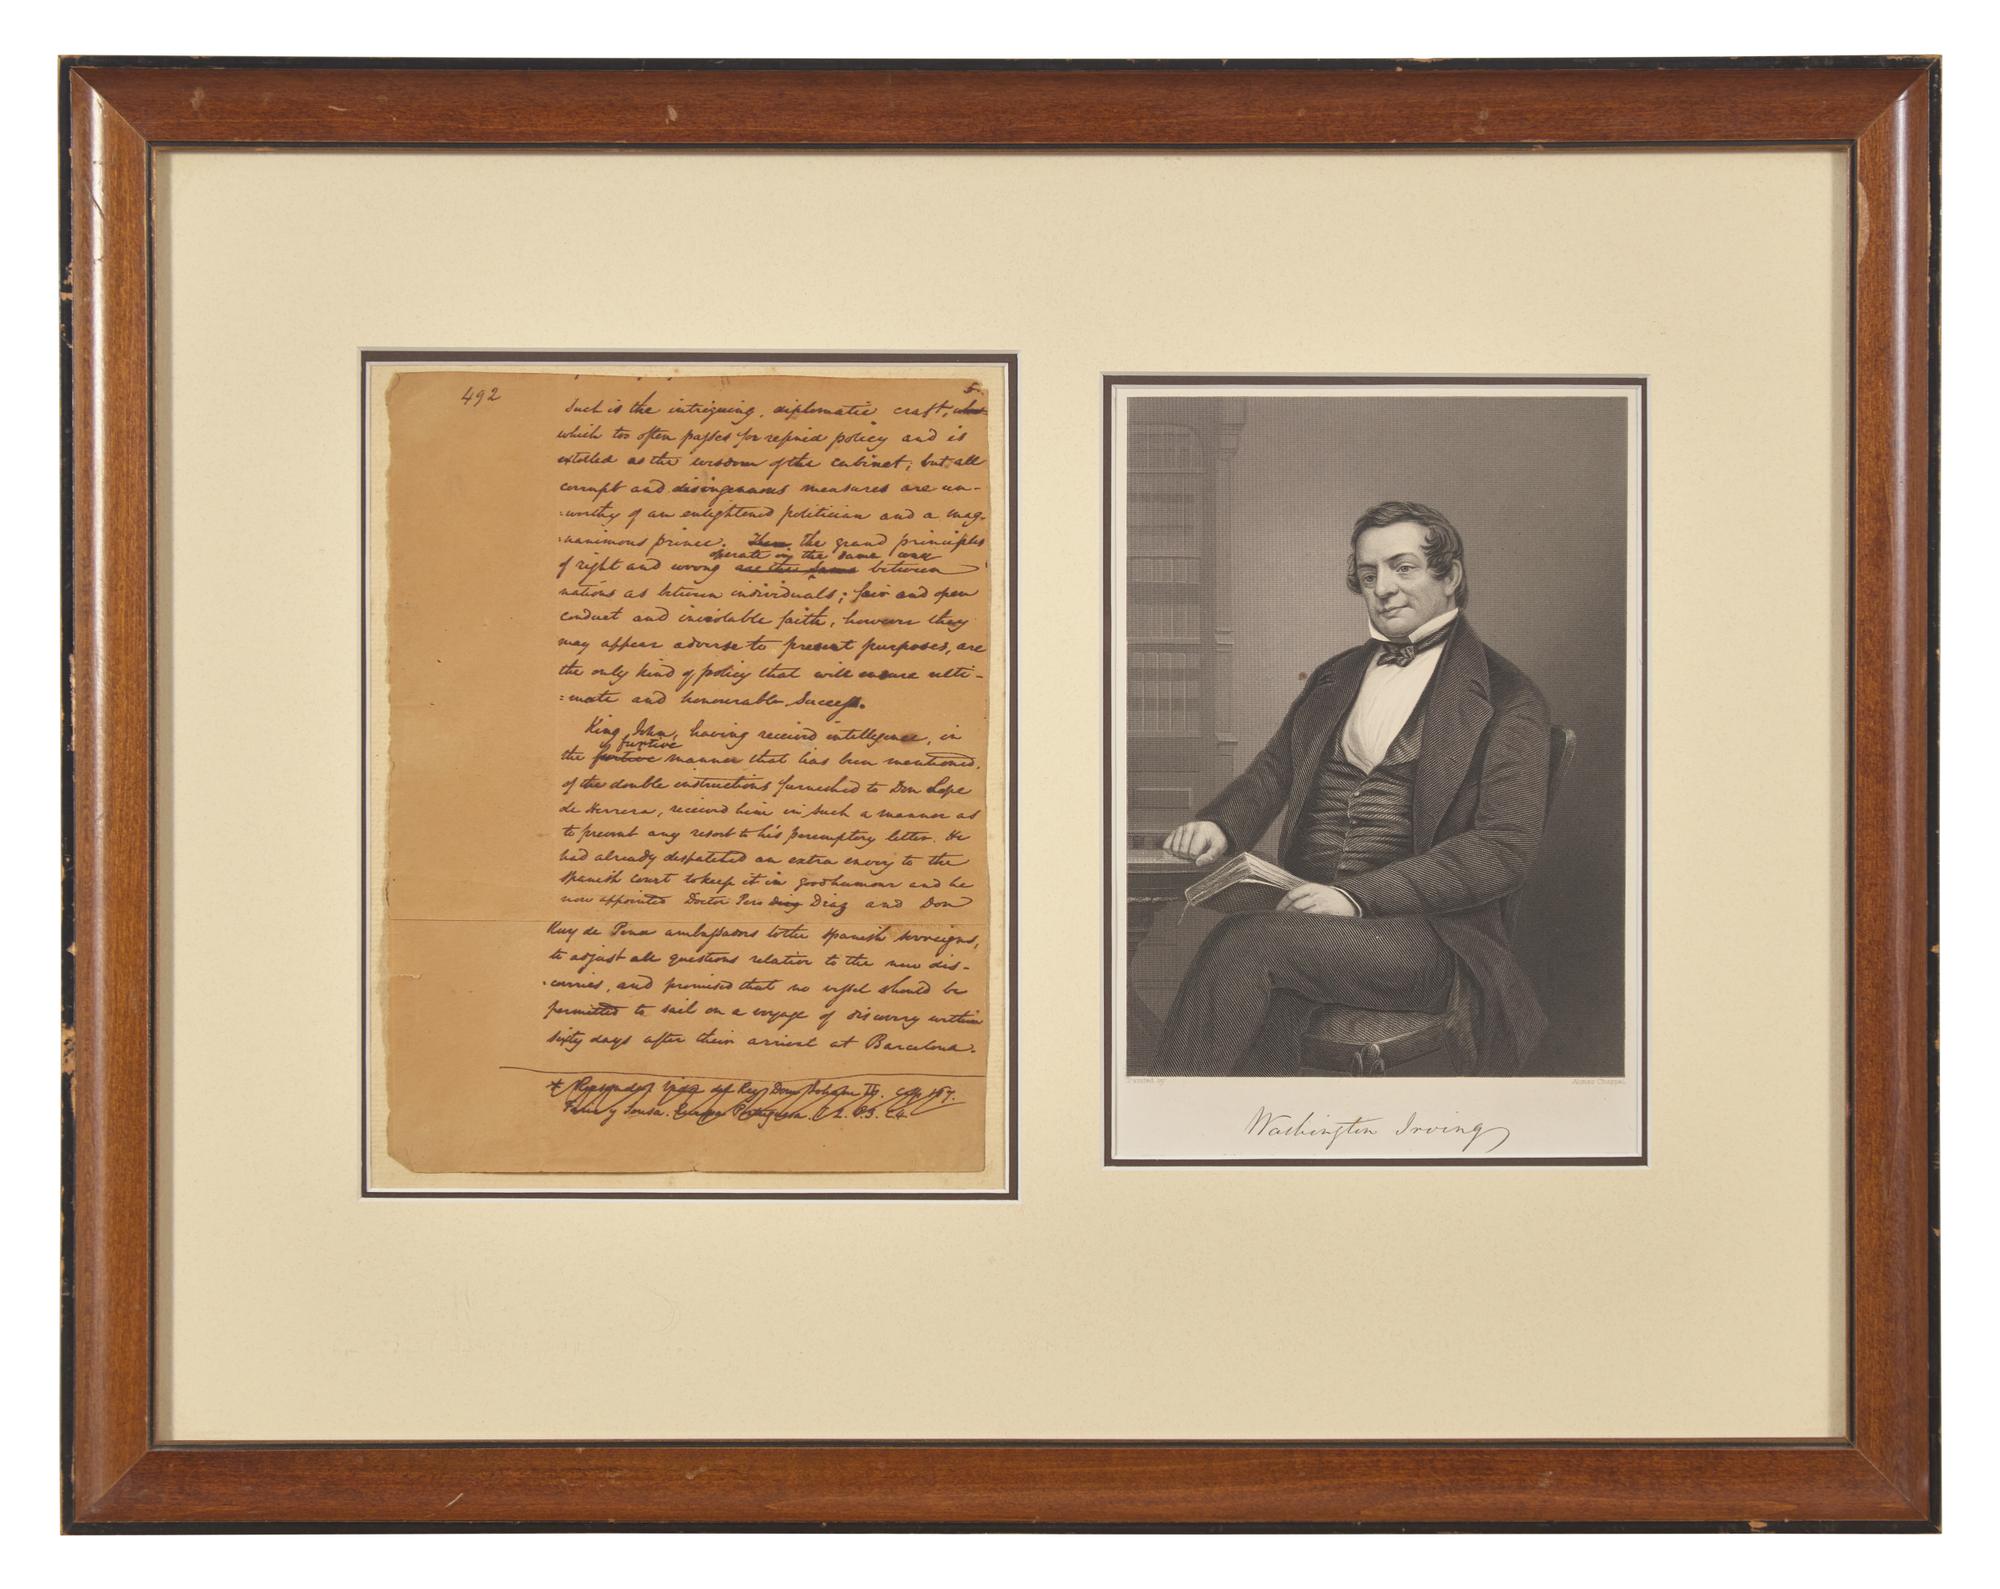 492
5.
Such is the intriguing, diplomatic craft,
which too often passes for refined policy and is
extolled as the wisdom of the cabinet; but all
corrupt and disingenuous measures are un-
:worthy of an enlightened politician and a mag-
:nanimous prince. Then the grand principles
operate in the same way
of right and wrong are the same between
nations as between individuals; fair and open
conduct and inviolable faith, however they
may appear adverse to present purposes, are
the only kind of policy that will ensure ulti-
:mate and honourable success.
King John, having received intelligence, in
furtive
the furtive manner that has been mentioned,
of the double instructions furnished to Don Lope
de Herrera, received him in such a manner as
to prevent any resort to his peremptory letter. He
had already despatched an extra envoy to the
Spanish court to keep it in good humour and he
now appointed Doctor Pero Diaz and Don
Ruy de Pena ambassadors to the Spanish sovreigns,
to adjust all questions relative to the new dis-
:coveries, and promised that no vessel should be
permitted to sail on a voyage of discovery within
sixty days after their arrival at Barcelona.
* Resende vida del Rey Dom Joham II. Cap 167.
Faria y Sousa. Europa Portuguesa.
Painted by
Alonzo Chappel
Washington Irving